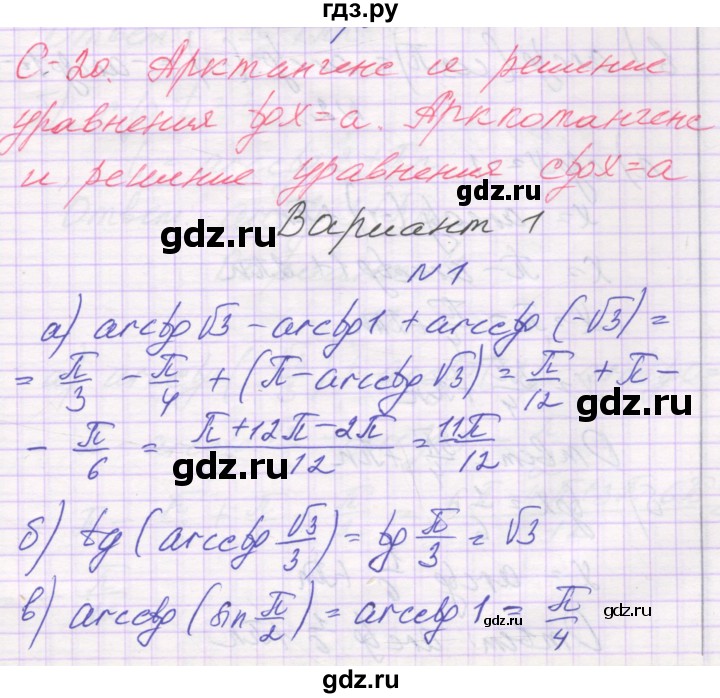 гдз.ру
С-20. Арктангенс и решение
уравнения tgx=a. Арккотангенс
и решение уравнения ctgx=a
gdz.ru
gdz.ru
Вариант 1
№1
а) arctg √3 - arctg 1 + arcctg (-√3) =
= π/3 - π/4 + (π - arcctg √3) = π/12 + π -
gdz.ru
- π/6 = (π+12π-2π)/12 = 11π/12
gdz.ru
б) tg (arcctg √3/3) = tg π/3 = √3
в) arcctg (sin π/2) = arcctg 1 = π/4
gdz.ru
gdz.ru